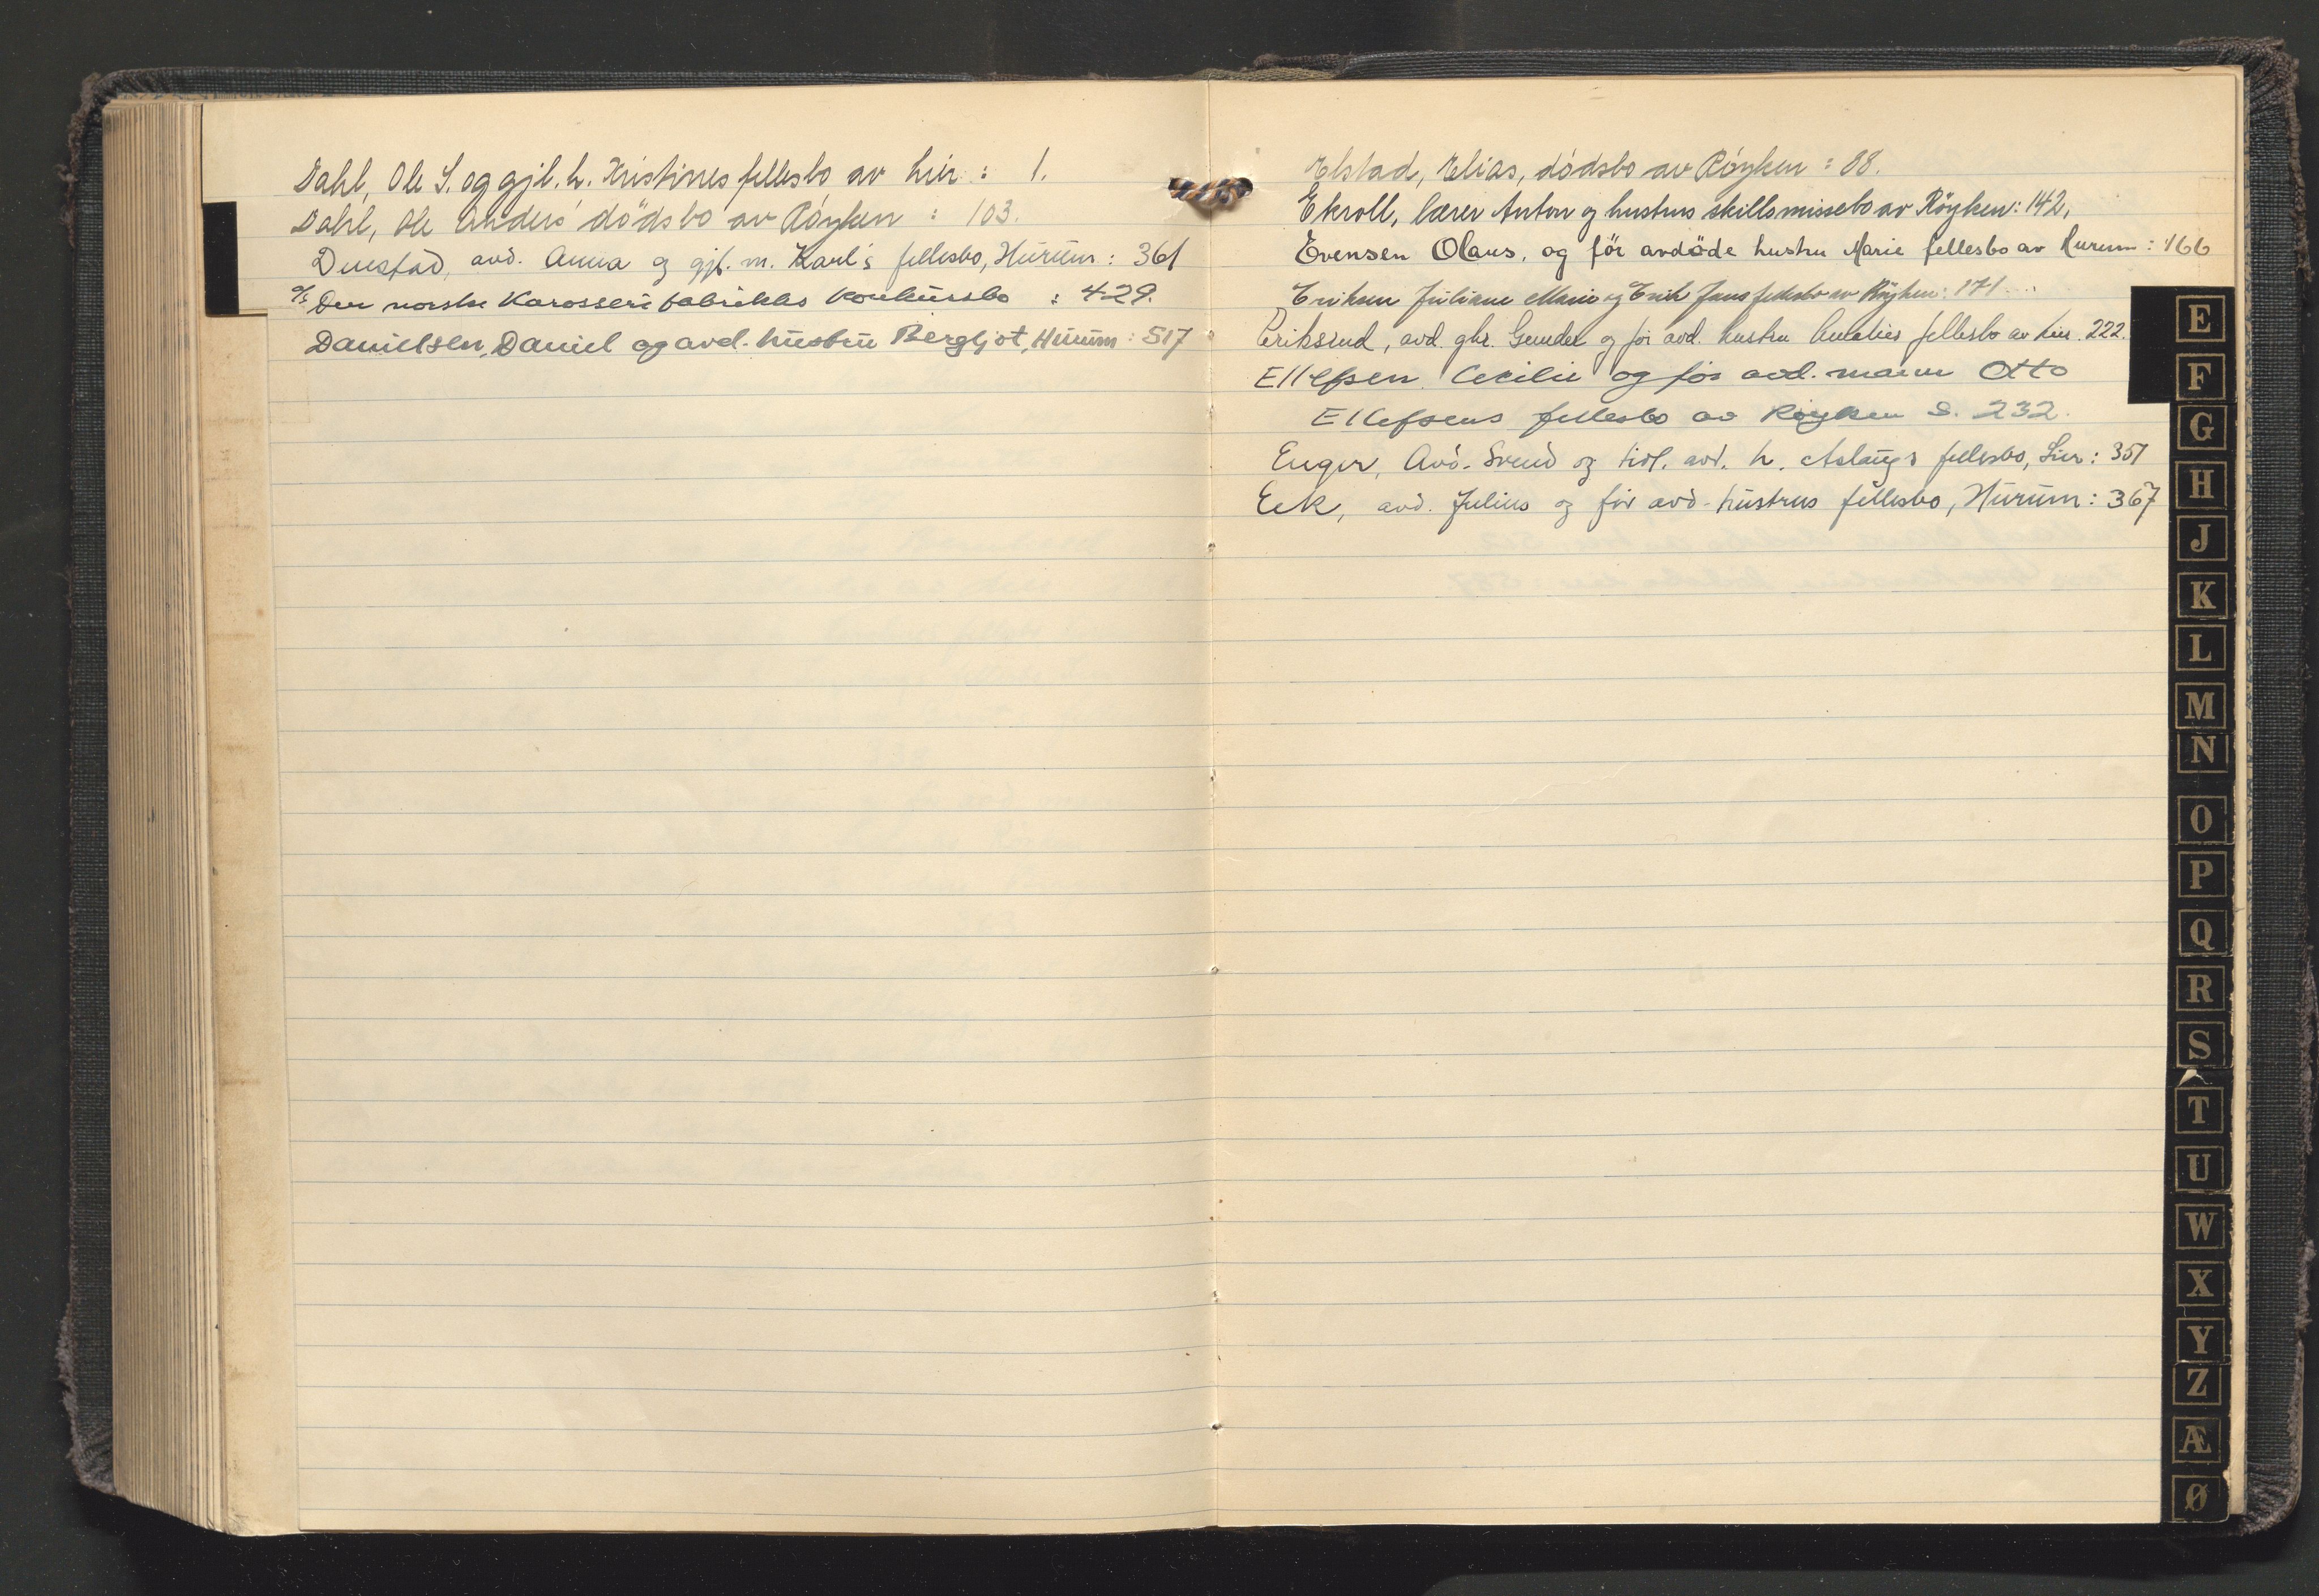 Dahl, Ole S. og gjl. h. Kristines fellesbo av Lier : 1.
Dahl, Ole Anders dödsbo av Röyken : 103.
avd. Anna og gjl. m. Karl's fellesbo, Hurum : 361
A/S Den norske Karosserifabrikks konkursbo : 429.
Danielsen, Daniel og avd. hustru Bergljot, Hurum : 517
Elstad, Elias, dödsbo av Röyken : 88.
Ekroll, lærer Anton og hustrus skillsmissebo av Röyken : 142,
Evensen Olaus, og för avdöde hustru Marie fellesbo av Hurum : 166
Eriksen Juliane Marie og Erik Jans fellesbo av Röyken : 171
Eriksrud, avd. gbr. Gunder og för avd. hustru Amalies fellesbo av Lier. 222.
Ellefsen Cecilie og för avd. mann Otto
Ellefsens fellesbo av Röyken S. 232.
Enger, Avd. Svend og tidl. avd. h. Aslaugs fellesbo, Lier : 351
Eek, avd. Julius og för avd. hustrus fellesbo, Hurum : 367
E
F
G
H
J
K
L
M
N
O
P
Q
R
S
T
U
W
X
Y
Z
Æ
Ø